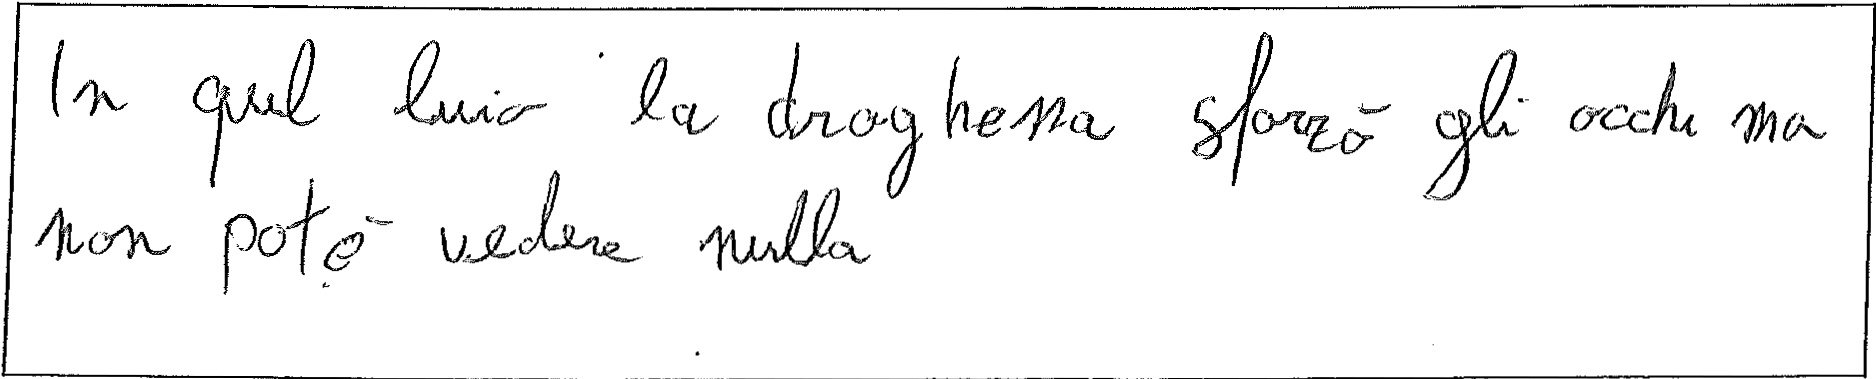 In quel luio la draghessa sforzò gli occhi ma
non potè vedere nulla